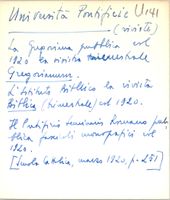 Università Pontificie U141
(riviste)
La Gregoriana pubblica col
1920 la rivista trimestrale
Gregorianum.
L'Istituto Biblico la rivista
Biblica (trimestrale) col 1920.
Il Pontificio Seminario Romano pub-
blica fascicoli monografici col
1920.
[Scuola Cattolica, marzo 1920, p. 251]